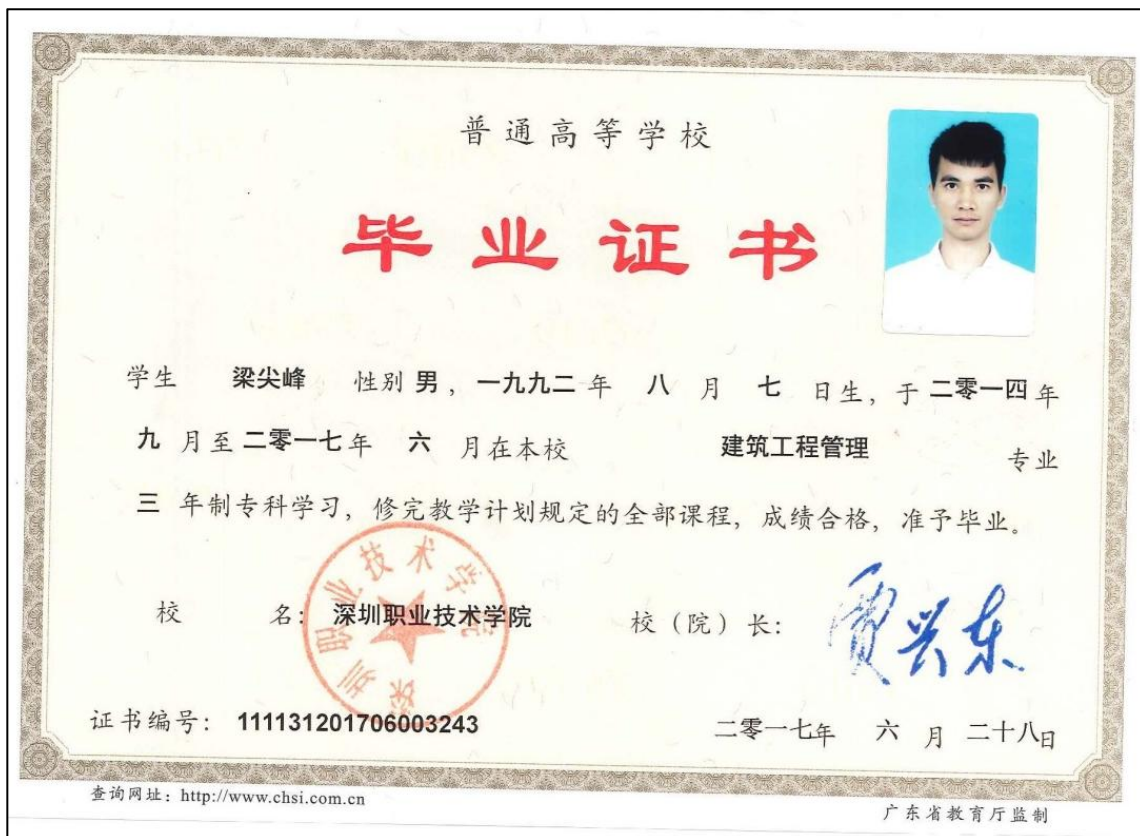 普通高等学校
毕业证书
学生 梁尖峰 性别 男，一九九二 年 八 月 七 日生，于 二零一四 年
九 月至 二零一七 年 六 月在本校 建筑工程管理 专业
三 年制专科学习，修完教学计划规定的全部课程，成绩合格，准予毕业。
深圳职业技术学院
校 名：深圳职业技术学院 校（院）长： 贾兴东
证书编号： 111131201706003243 二零一七年 六 月 二十八日
查询网址：http://www.chsi.com.cn 广东省教育厅监制